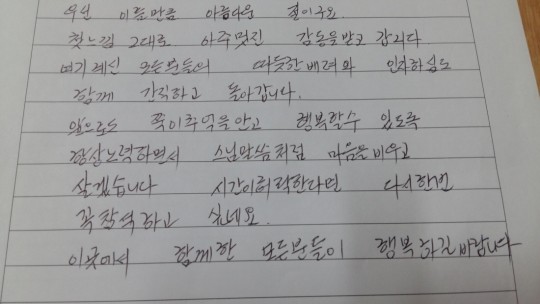 우선 이름만큼 아름다운 절이구요.
첫느낌 그대로 아주멋진 감동을받고 갑니다
여기계신 모든분들의 따듯한배려와 인자하심도
함께 간직하고 돌아갑니다.
앞으로도 쭉이추억을안고 행복할수 있도록
항상노력하면서 스님말씀처럼 마음을비우고
살겠습니다 시간이허락한다면 다시한번
꼭참석하고 싶네요.
이곳에서 함께한 모든분들이 행복하길바랍니다